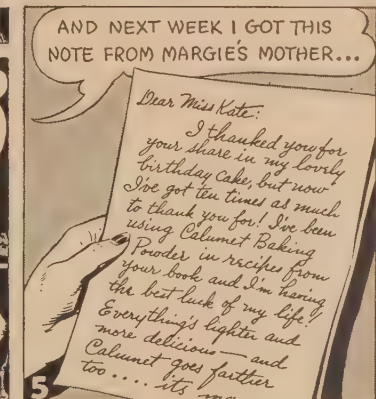 AND NEXT WEEK I GOT THIS
NOTE FROM MARGIE'S MOTHER...
Dear Miss Kate:
I thanked you for
your share in my lovely
birthday cake, but now
I've got ten times as much
to thank you for! I've been
using Calumet Baking
Powder in recipes from
your book and I'm having
the best luck of my life!
Everything's lighter and
more delicious — and
Calumet goes farther
too .... its
5